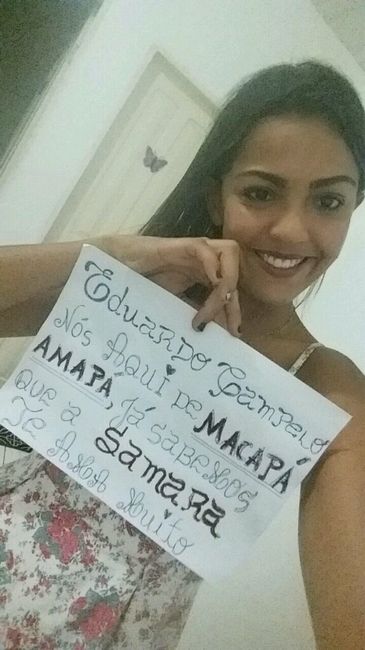 Eduardo Campelo
Nós Aqui de MACAPÁ
AMAPÁ, Já sabemos
que a Samara
Te Ama Muito